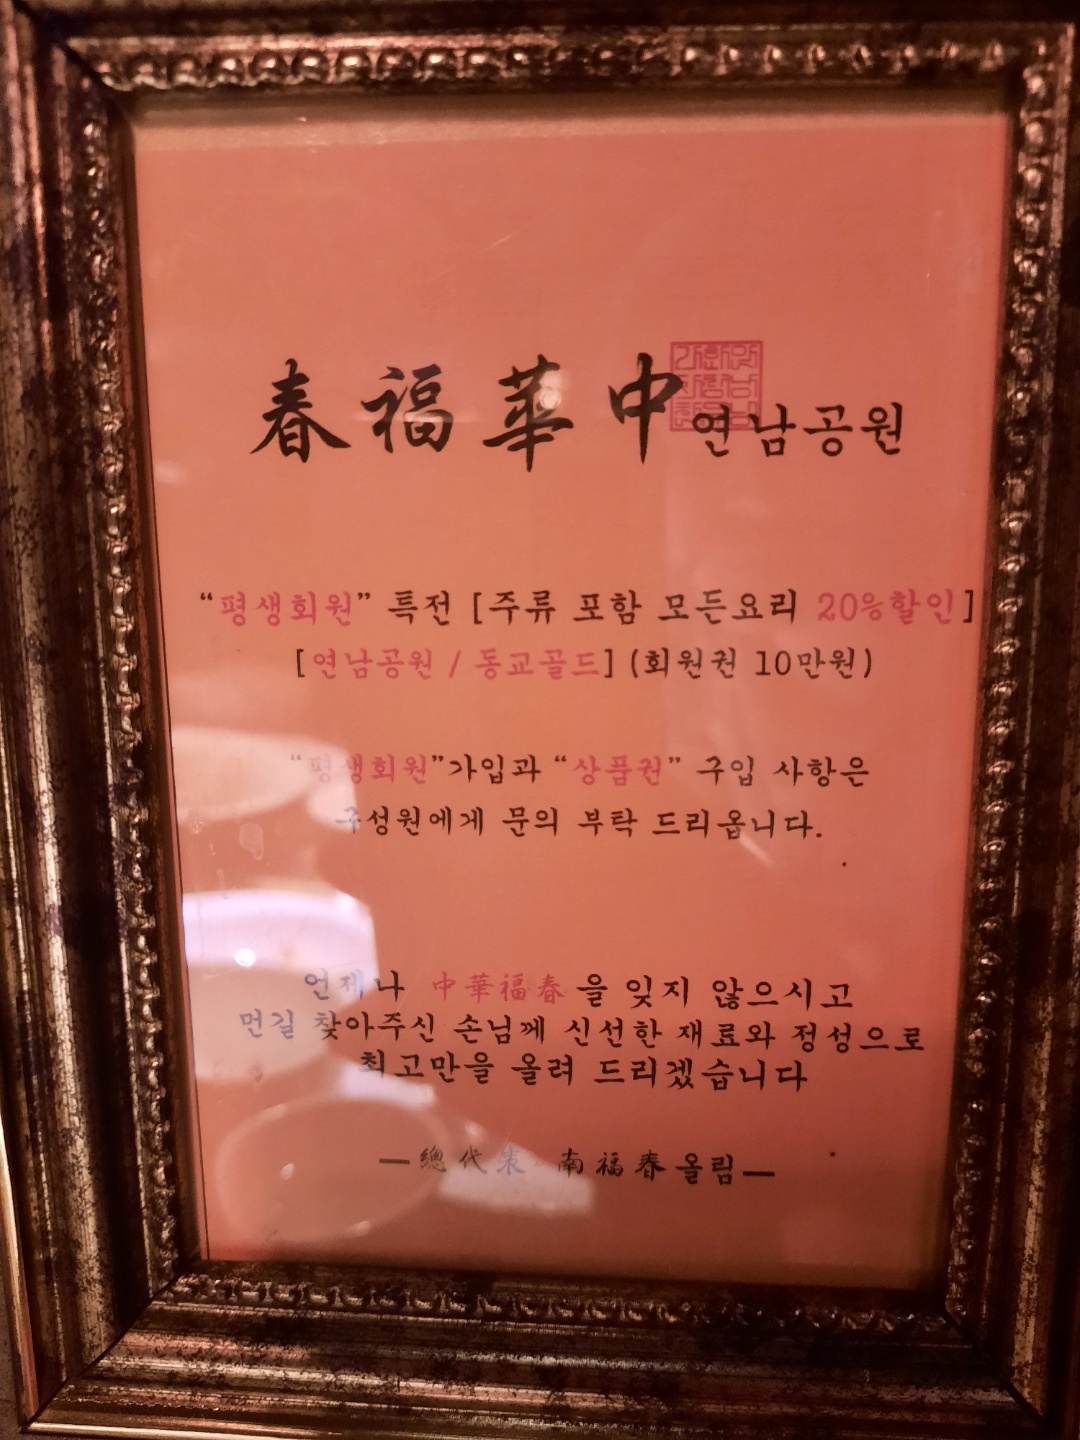 春福華中 연남공원
“평생회원” 특전 [주류 포함 모든요리 20%할인]
[연남공원 / 동교골드] (회원권 10만원)
“평생회원”가입과 “상품권” 구입 사항은
구성원에게 문의 부탁 드리옵니다.
언제나 中華福春 을 잊지 않으시고
먼길 찾아주신 손님께 신선한 재료와 정성으로
최고만을 올려 드리겠습니다
—總代表 南福春올림—